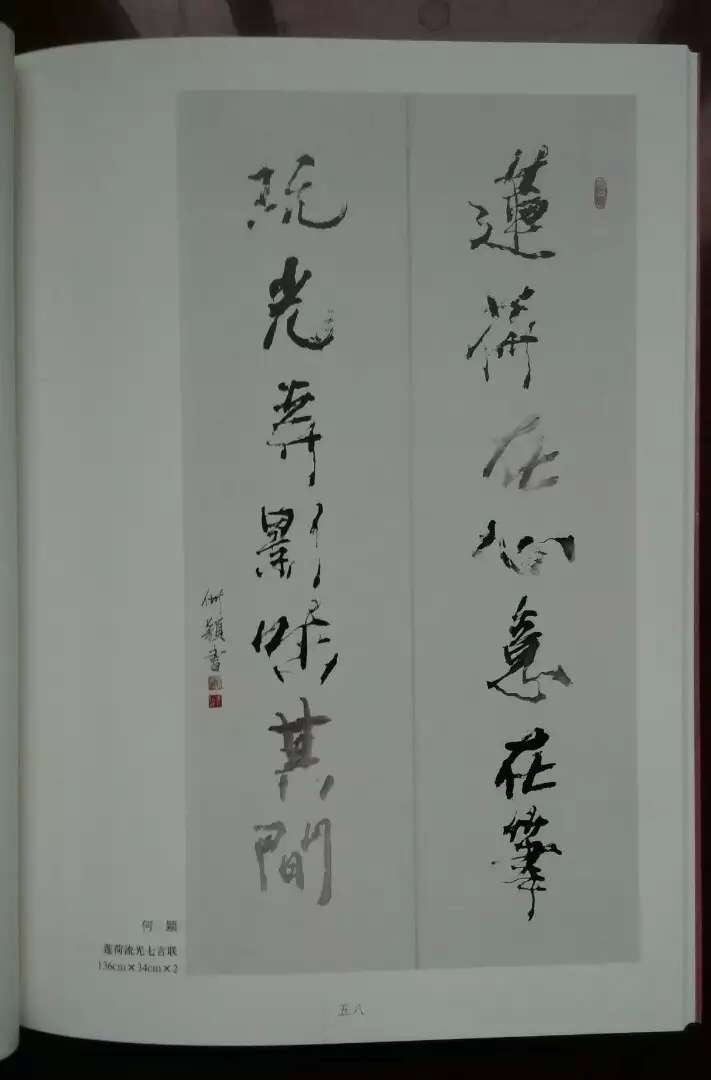 蓮荷在心意在筆
流光弄影味其間
何穎書
何 颖
莲荷流光七言联
136cm×34cm×2
五八